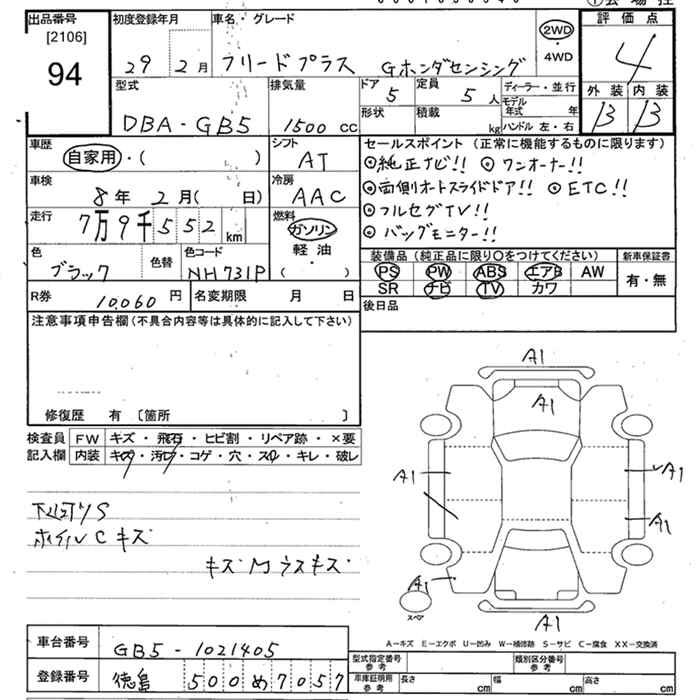 出品番号
[2106]
94
初度登録年月
29 2月
車名・グレード
フリードプラス Gホンダセンシング
2WD
・
4WD
評価点
4
外装 内装
B B
型式
DBA-GB5
排気量
1500 cc
ドア
5
定員
5人
形状
積載
kg
ディーラー・並行
モデル年式 年
ハンドル 左・右
車歴
自家用・( )
シフト
AT
車検
8年 2月( 日)
冷房
AAC
走行
7万9千552 km
燃料
ガソリン
軽油
( )
色
ブラック
色替
色コード
NH731P
R券
10,060 円
名変期限 月 日
セールスポイント (正常に機能するものに限ります)
◎純正ナビ!! ◎ワンオーナー!!
◎両側オートスライドドア!! ◎ETC!!
◎フルセグTV!!
◎バックモニター!!
装備品(純正品に限り○をつけてください)
PS PW ABS エアB AW
SR ナビ TV カワ
新車保証書
有・無
後日品
注意事項申告欄(不具合内容等は具体的に記入して下さい)
修復歴 有 〔箇所 〕
検査員
記入欄
FW キズ・飛石・ヒビ割・リペア跡・×要
内装 キズ・汚れ・コゲ・穴・スレ・キレ・破レ
下廻りS
ホイルCキズ
キズMウスキズ
A1
A1
A1
A1
A1
A1
A1
スペア
A-キズ E-エクボ U-凹み W-補修跡 S-サビ C-腐食 XX-交換済
車台番号
GB5-1021405
登録番号
徳島 500め7057
型式指定番号
参考
類別区分番号
参考
車庫証明用
参考
長さ cm
幅 cm
高さ cm